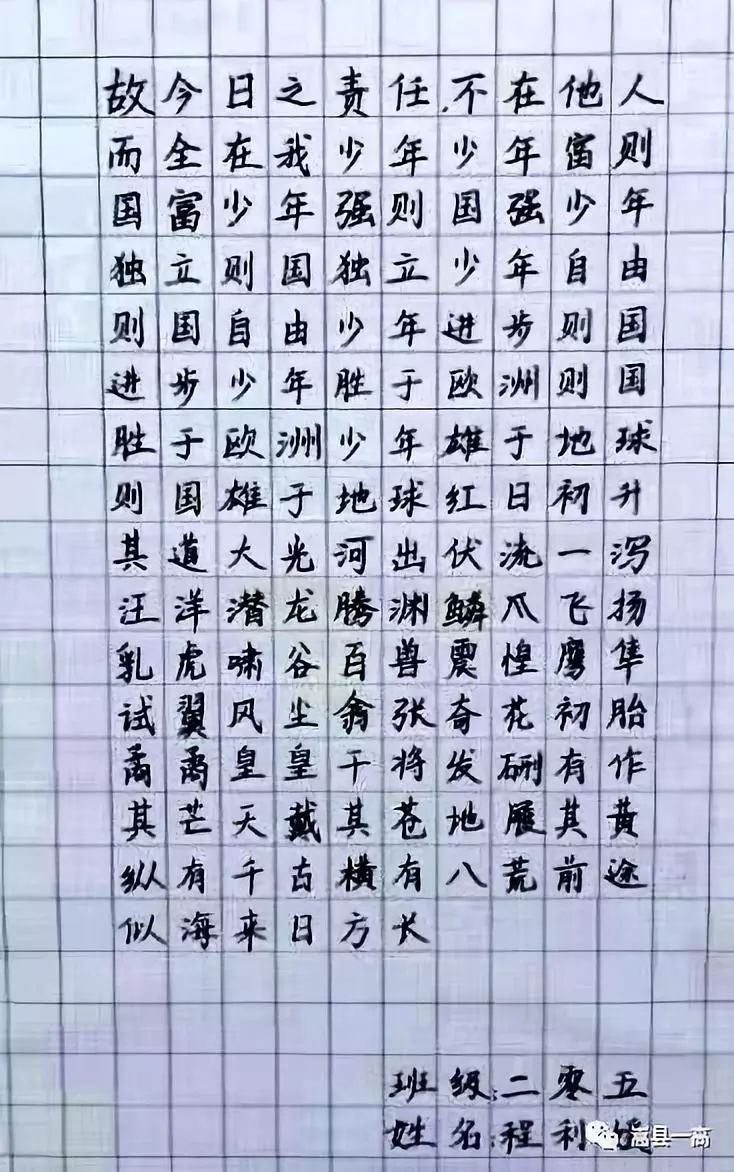 故今日之责任,不在他人
而全在我少年少年富则
国富少年强则国强少年
独立则国独立少年自由
则国自由少年进步则国
进步少年胜于欧洲则国
胜于欧洲少年雄于地球
则国雄于地球红日初升
其道大光河出伏流一泻
汪洋潜龙腾渊鳞爪飞扬
乳虎啸谷百兽震惶鹰隼
试翼风尘翕张奇花初胎
矞矞皇皇干将发硎有作
其芒天戴其苍地履其黄
纵有千古横有八荒前途
似海来日方长
班级:二零五
姓名:程利
嵩县一高